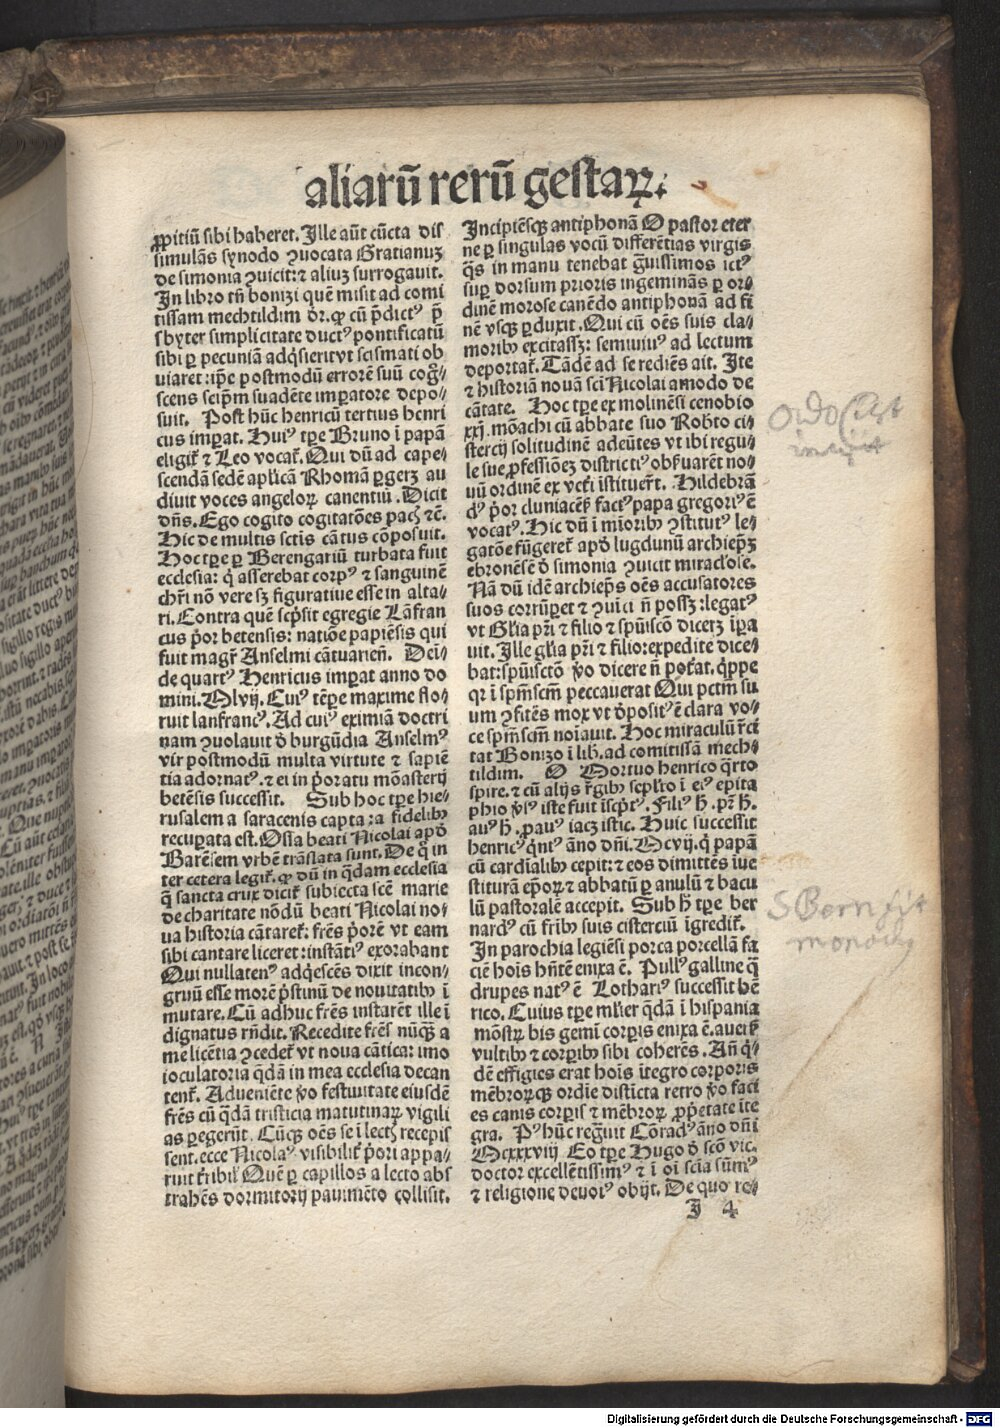 aliarū rerū gestaꝝ.
ꝓpitiū sibi haberet. Ille aūt cūcta dis
simulās synodo ꝯuocata Gratianuꝫ
de simonia ꝯuicit: ⁊ aliuꝫ surrogauit.
In libro tn̄ bonizi quē misit ad comi
tissam mechtildim dr̄. ꝙ cū p̄dictꝰ p̄
sbyter simplicitate ductꝰ pontificatū
sibi ꝑ pecuniā adq̄sierit vt scismati ob
uiaret: ip̄e postmodū errorē suū cog̃
scens seip̄m suadēte imꝑatore depo
suit. Post hūc henricū tertius henri
cus imꝑat. Huiꝰ tꝑe Bruno ī papā
eligit̄ ⁊ Leo vocat̄. Qui dū ad cape
scendā sedē apl̄icā Rhomā ꝑgeꝫ au
diuit voces angeloꝝ canentiū. Dicit
dn̄s. Ego cogito cogitatōes pac̨ ⁊c̄.
Hic de multis sctis cātus cōposuit.
Hoc tꝑe ꝑ Berengariū turbata fuit
ecclesia: q̇ asserebat corpꝰ ⁊ sanguinē
chr̄i nō vere sꝫ figuratiue esse in alta
ri. Contra quē scp̄sit egregie Lāfran
cus p̄or betensis: natiōe papiēsis qui
fuit magr̄ Anselmi cātuarien̄. Dei
de quartꝰ Henricus imꝑat anno do
mini. Mlvij. Cuiꝰ tēꝑe maxime flo
ruit lanfrancꝰ. Ad cuiꝰ eximiā doctri
nam ꝯuolauit d̓ burgūdia Anselmꝰ
vir postmodū multa virtute ⁊ sapiē
tia adornatꝰ. ⁊ ei in p̄oratu mōasterij
betēsis successit. Sub hoc tꝑe hie
rusalem a saracenis capta: a fidelibꝰ
recuꝑata est. Ossa beati Nicolai apd̓
Barēsem vrbē trāslata sunt. De q̇ in
ter cetera legit̄. ꝙ dū in q̄dam ecclesia
q̄ sancta crux dicit̄ subiecta scē marie
de charitate nōdū beati Nicolai no
ua historia cātaret̄: fr̄es p̄orē vt eam
sibi cantare liceret: instātiꝰ exorabant
Qui nullatenꝰ adq̄escēs dixit incon
gruū esse morē p̄stinū de nouitatibꝰ ī
mutare. Cū adhuc fr̄es instarēt ille ī
dignatus rn̄dit. Recedite fr̄es nūq̄ꝫ a
me licētia ꝯcedet̄ vt noua cātica: imo
ioculatoria q̄dā in mea ecclesia decan
tent̄. Adueniēte v̓o festiuitate eiusdē
fr̄es cū q̄dā tristicia matutinaꝝ vigili
as ꝑegerūt. Cūcꝫ oēs se ī lect̨ recepis
sent. ecce Nicolaꝰ visibilit̄ p̄ori appa
ruit t̄ribil̓. Quē ꝑ capillos a lecto abs
trahēs dormitorij pauimēto collisit.
Incipiēscꝫ antiphonā O pastor eter
ne ꝑ singulas vocū differētias virgis
q̄s in manu tenebat g̃uissimos ictꝰ
suꝑ dorsum prioris ingeminās ꝑ or
dinē morose canēdo antiphonā ad fi
nē vscꝫ ꝑduxit. Qui cū oēs suis cla
moribꝰ excitassꝫ: semiuiuꝰ ad lectum
deportat̄. Tādē ad se rediēs ait. Ite
⁊ historiā nouā sci Nicolai amodo de
cātate. Hoc tꝑe ex molinēsi cenobio
xxj. mōachi cū abbate suo Robto ci
stercij solitudinē adeūtes vt ibi regu
le sue ꝓfessiōeꝫ districtiꝰ obsuarēt no
uū ordinē ex vet̄i īstituer̄t. Hildebrā
dꝰ p̄or cluniacēs̄ factꝰ papa gregoriꝰ ē
vocatꝰ. Hic dū ī mīoribꝰ ꝯstitutꝰ le
gatōe fūgeret̄ apd̓ lugdunū archiep̄ꝫ
ebronēsē d̓ simonia ꝯuicit miraclose.
Nā dū idē archiep̄s oēs accusatores
suos corrūꝑet ⁊ ꝯuīci n̄ possꝫ: legatꝰ
vt Gl̄ia pr̄i ⁊ filio ⁊ spūiscō dicerꝫ īꝑa
uit. Ille gl̄ia pr̄i ⁊ filio: expedite dice
bat: spūisctō v̓o dicere n̄ potat̄. q̄ppe
qr ī spm̄scm̄ peccauerat Qui pctm̄ su
um ꝯfitēs mox vt d̓positꝰ ē clara vo
ce spm̄scm̄ noīauit. Hoc miraculū r̄ci
tat Bonizo ī lib. ad comitissā mech
tildim. O Mortuo henrico q̄rto
spire. ⁊ cū alijs r̄gibꝰ sepl̄to ī eiꝰ epita
phio v̓sꝰ iste fuit īscp̄tꝰ. Filiꝰ h̄. pr̄ h̄.
auꝰ h̄. ꝓauꝰ iacꝫ istic. Huic successit
henricꝰ q̄ntꝰ āno dn̄i. Mcvij. q̇ papā
cū cardīalibꝰ cepit: ⁊ eos dimittēs īue
stiturā ep̄oꝝ ⁊ abbatū ꝑ anulū ⁊ bacu
lū pastoralē accepit. Sub h̄ tꝑe ber
nardꝰ cū fribꝰ suis cisterciū īgredit̄.
In parochia legiēsi porca porcellā fa
ciē hoīs hn̄tē enixa ē. Pullꝰ galline q̄
drupes natꝰ ē Lothariꝰ successit hē
rico. Cuius tꝑe ml̓ier q̄dā ī hispania
mōstꝝ bis gemī corꝑis enixa ē. aueꝛs̄
vultibꝰ ⁊ corꝑibꝰ sibi coherēs. An̄ q̇
dē effigies erat hoīs ītegro corporis
mēbroꝝcꝫ ordīe distīcta retro v̓o faci
es canis corꝑis ⁊ mēbroꝝ ꝓp̄etate īte
gra. Pꝰ hūc reg̃uit Cōradꝰ āno dn̄i
Mcxxxviij Eo tꝑe Hugo d̓ scō vic.
doctor excellētissimꝰ ⁊ ī oī scīa sūmꝰ
⁊ religione deuotꝰ obijt. De quo re
J 4
Ordo Cist
incipit
S Bern fit
monachꝰ
Digitalisierung gefördert durch die Deutsche Forschungsgemeinschaft - DFG